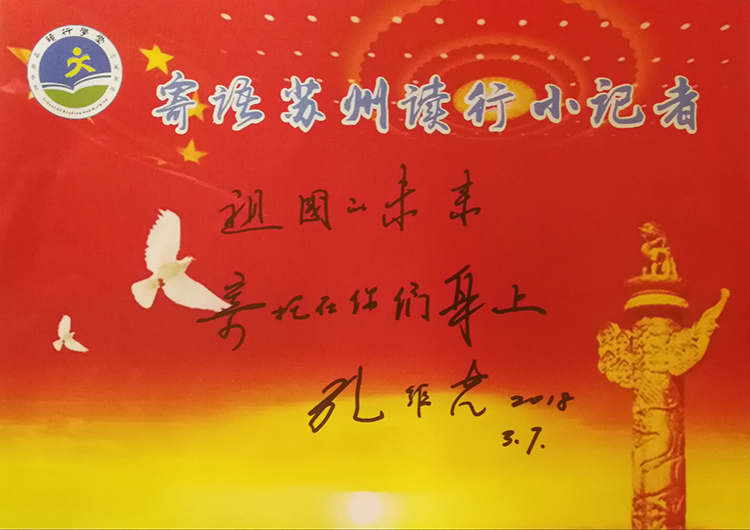 读行学堂
School of Reading and Walking
寄语苏州读行小记者
祖國的未来
寄托在你们身上
孔维克 2018
3.7.